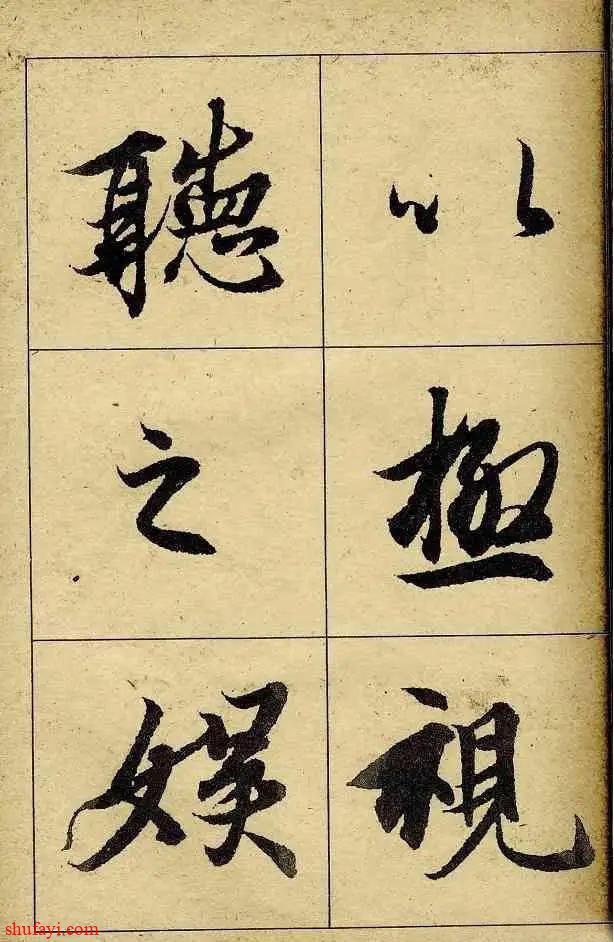 以極視
聽之娛
shufayi.com